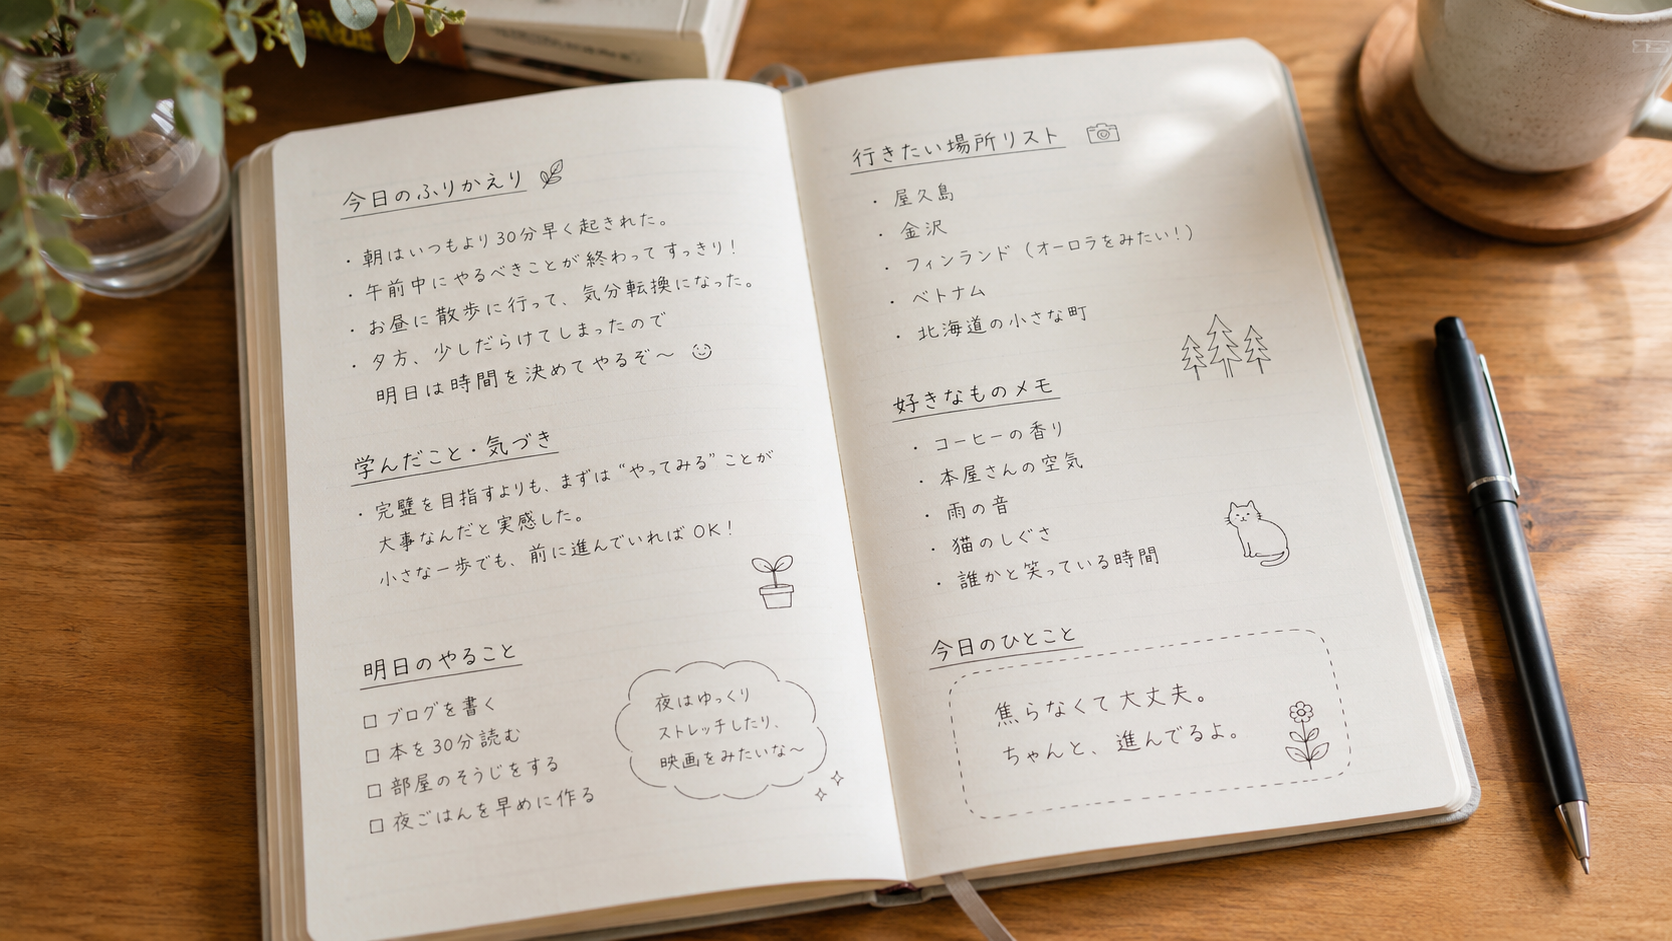 今日のふりかえり
・朝はいつもより30分早く起きれた。
・午前中にやるべきことが終わってすっきり!
・お昼に散歩に行って、気分転換になった。
・夕方、少しだらけてしまったので
明日は時間を決めてやるぞ〜
学んだこと・気づき
・完璧を目指すよりも、まずは“やってみる”ことが
大事なんだと実感した。
小さな一歩でも、前に進んでいればOK!
明日のやること
□ ブログを書く
□ 本を30分読む
□ 部屋のそうじをする
□ 夜ごはんを早めに作る
夜はゆっくり
ストレッチしたり、
映画をみたいな〜
行きたい場所リスト
・屋久島
・金沢
・フィンランド(オーロラをみたい!)
・ベトナム
・北海道の小さな町
好きなものメモ
・コーヒーの香り
・本屋さんの空気
・雨の音
・猫のしぐさ
・誰かと笑っている時間
今日のひとこと
焦らなくて大丈夫。
ちゃんと、進んでるよ。